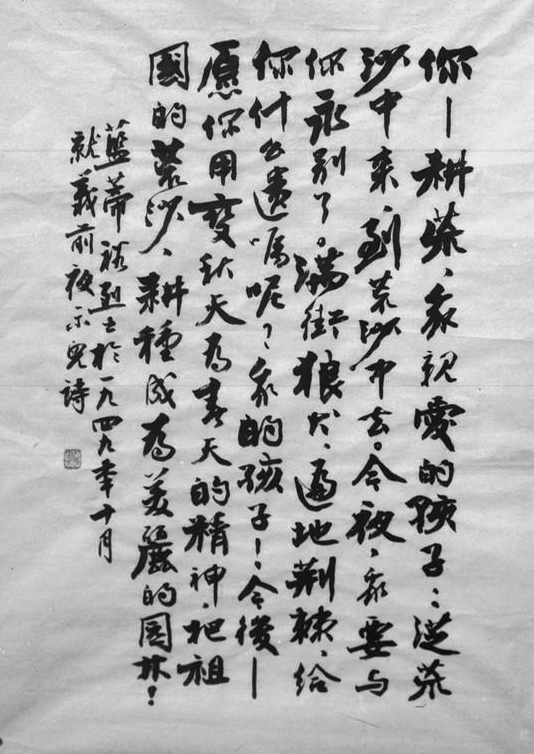 你—耕荒、我親愛的孩子：從荒
沙中來、到荒沙中去。今夜、我要与
你永别了。满街狼犬、遍地荆棘、给
你什么遗嘱呢？我的孩子！今後—
愿你用變秋天為春天的精神、把祖
國的荒沙、耕種成為美麗的园林！
藍蒂裕烈士於一九四九年十月
就義前夜示兒詩